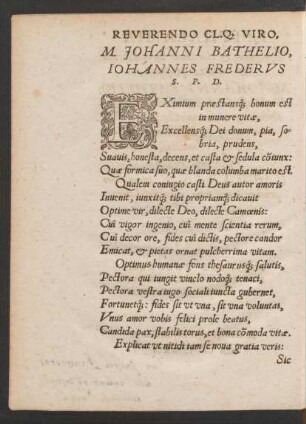 REVERENDO CL.Q; VIRO,
M. JOHANNI BATHELIO,
IOHANNES FREDERVS
S. P. D.
EXimium præstansq; bonum est
in munere vitæ,
Excellensq; Dei donum, pia, so-
bria, prudens,
Suavis, honesta, decens, et casta & sedula cōiunx:
Quæ formica suo, quæ blanda columba marito est.
Qualem coniugio casti Deus autor amoris
Invenit, iunxitq; tibi propriamq; dicavit
Optime vir, dilecte Deo, dilecte Camœnis:
Cui vigor ingenio, cui mente scientia rerum,
Cui decor ore, fides cui dictis, pectore candor
Emicat, & pietas ornat pulcherrima vitam.
Optimus humanæ fons thesaurusq; salutis,
Pectora qui iungit vinclo nodoq; tenaci,
Pectora vestra iugo sociali iuncta gubernet,
Fortunetq;: fides sit vt vna, sit vna voluntas,
Vnus amor vobis felici prole beatus,
Candida pax, stabilis torus, et bona cōmoda vitæ.
Explicat vt nitidi iam se nova gratia veris:
Sic